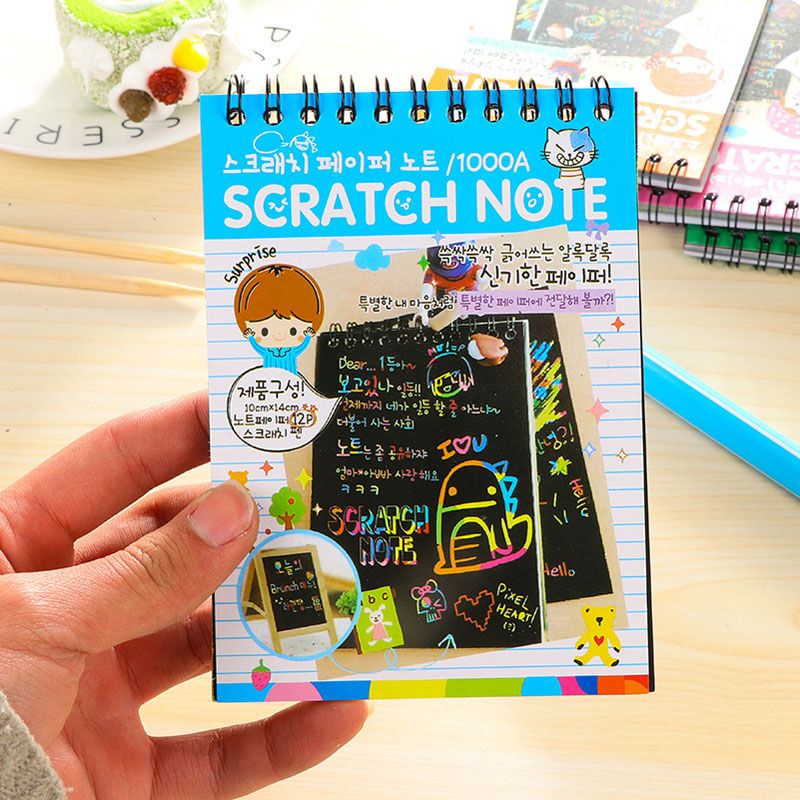 스크래치 페이퍼 노트 /1000A
SCRATCH NOTE
Surprise
쓱싹쓱싹 긁어쓰는 알록달록
신기한 페이퍼!
특별한 내 마음처럼 특별한 페이퍼에 전달해 볼까?!
제품구성!
10cm×14cm
노트페이퍼 12P
스크래치 펜
Dear... 1등아~
보고있나 일등!!
언제까지 네가 일등 할 줄 아느냐~
더불어 사는 사회
노트는 좀 공유하쟈
엄마*아빠 사랑해요
ㅋㅋㅋ
I U
SCRATCH
NOTE
안녕?!
Hello
Hello
PIXEL
HEART!
(?)
오늘의
Brunch 메뉴!
b c
SSERI
SCRAT